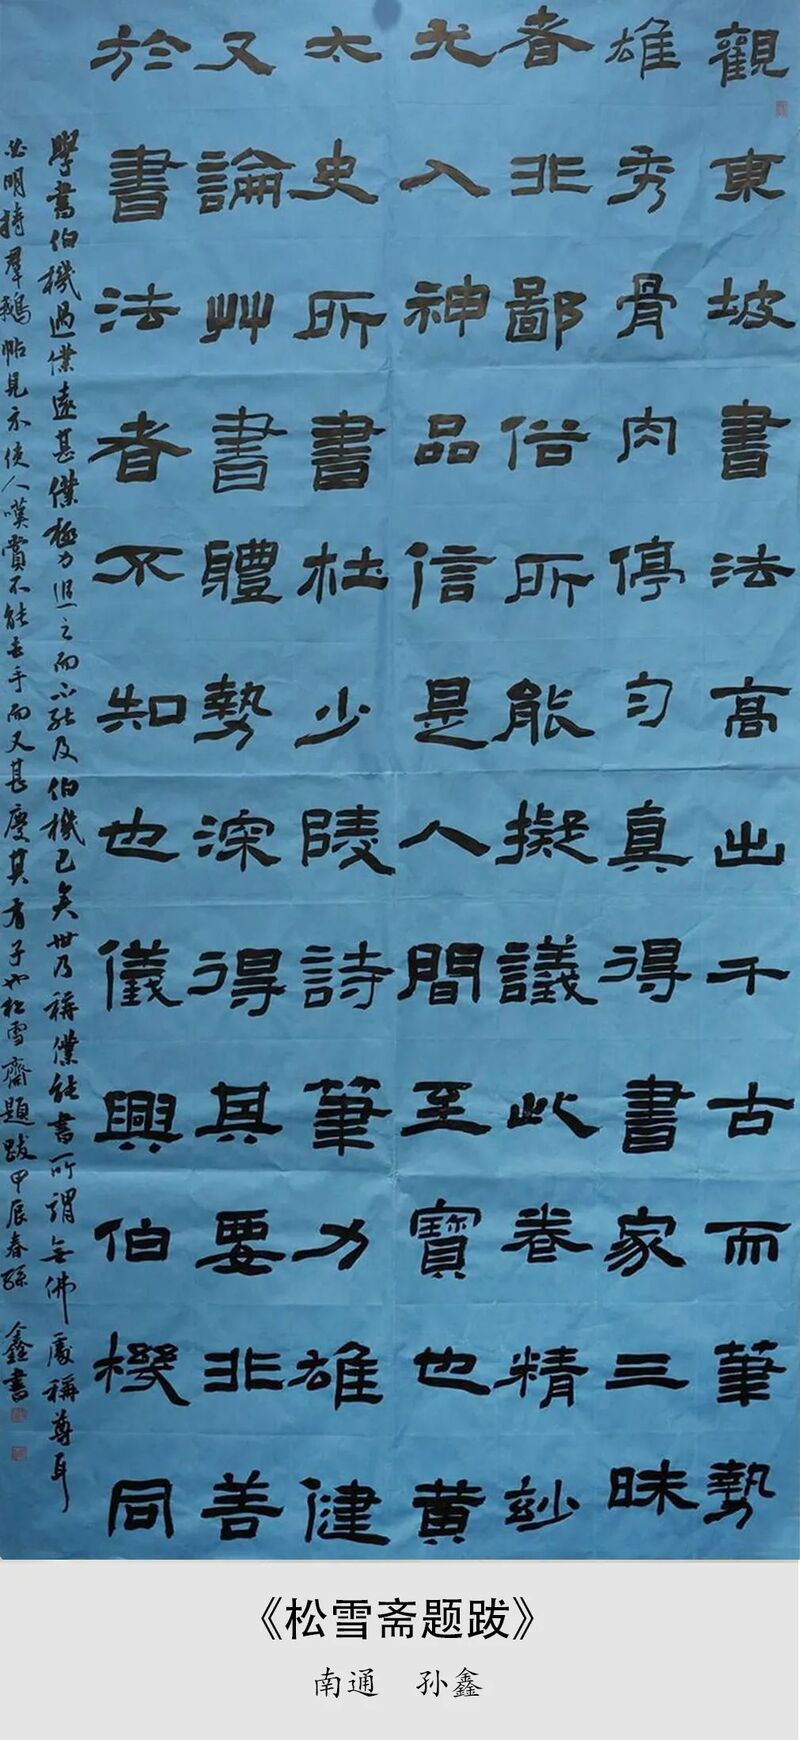 觀東坡書法高出千古而筆勢
雄秀骨肉停匀真得書家三昧
者非鄙俗所能擬議此卷精妙
尤入神品信是人間至寶也黄
太史所書杜少陵詩筆力雄健
又論艸書體勢深得其要非善
於書法者不知也儀興伯機同
學書伯機過僕遠甚僕極力追之而不能及伯機已矣世乃稱僕能書所謂無佛處稱尊耳
必明持羣鵝帖見示使人嘆賞不能去手而又甚慶其有子也松雪齋題跋甲辰春孫鑫書
《松雪斋题跋》
南通 孙鑫